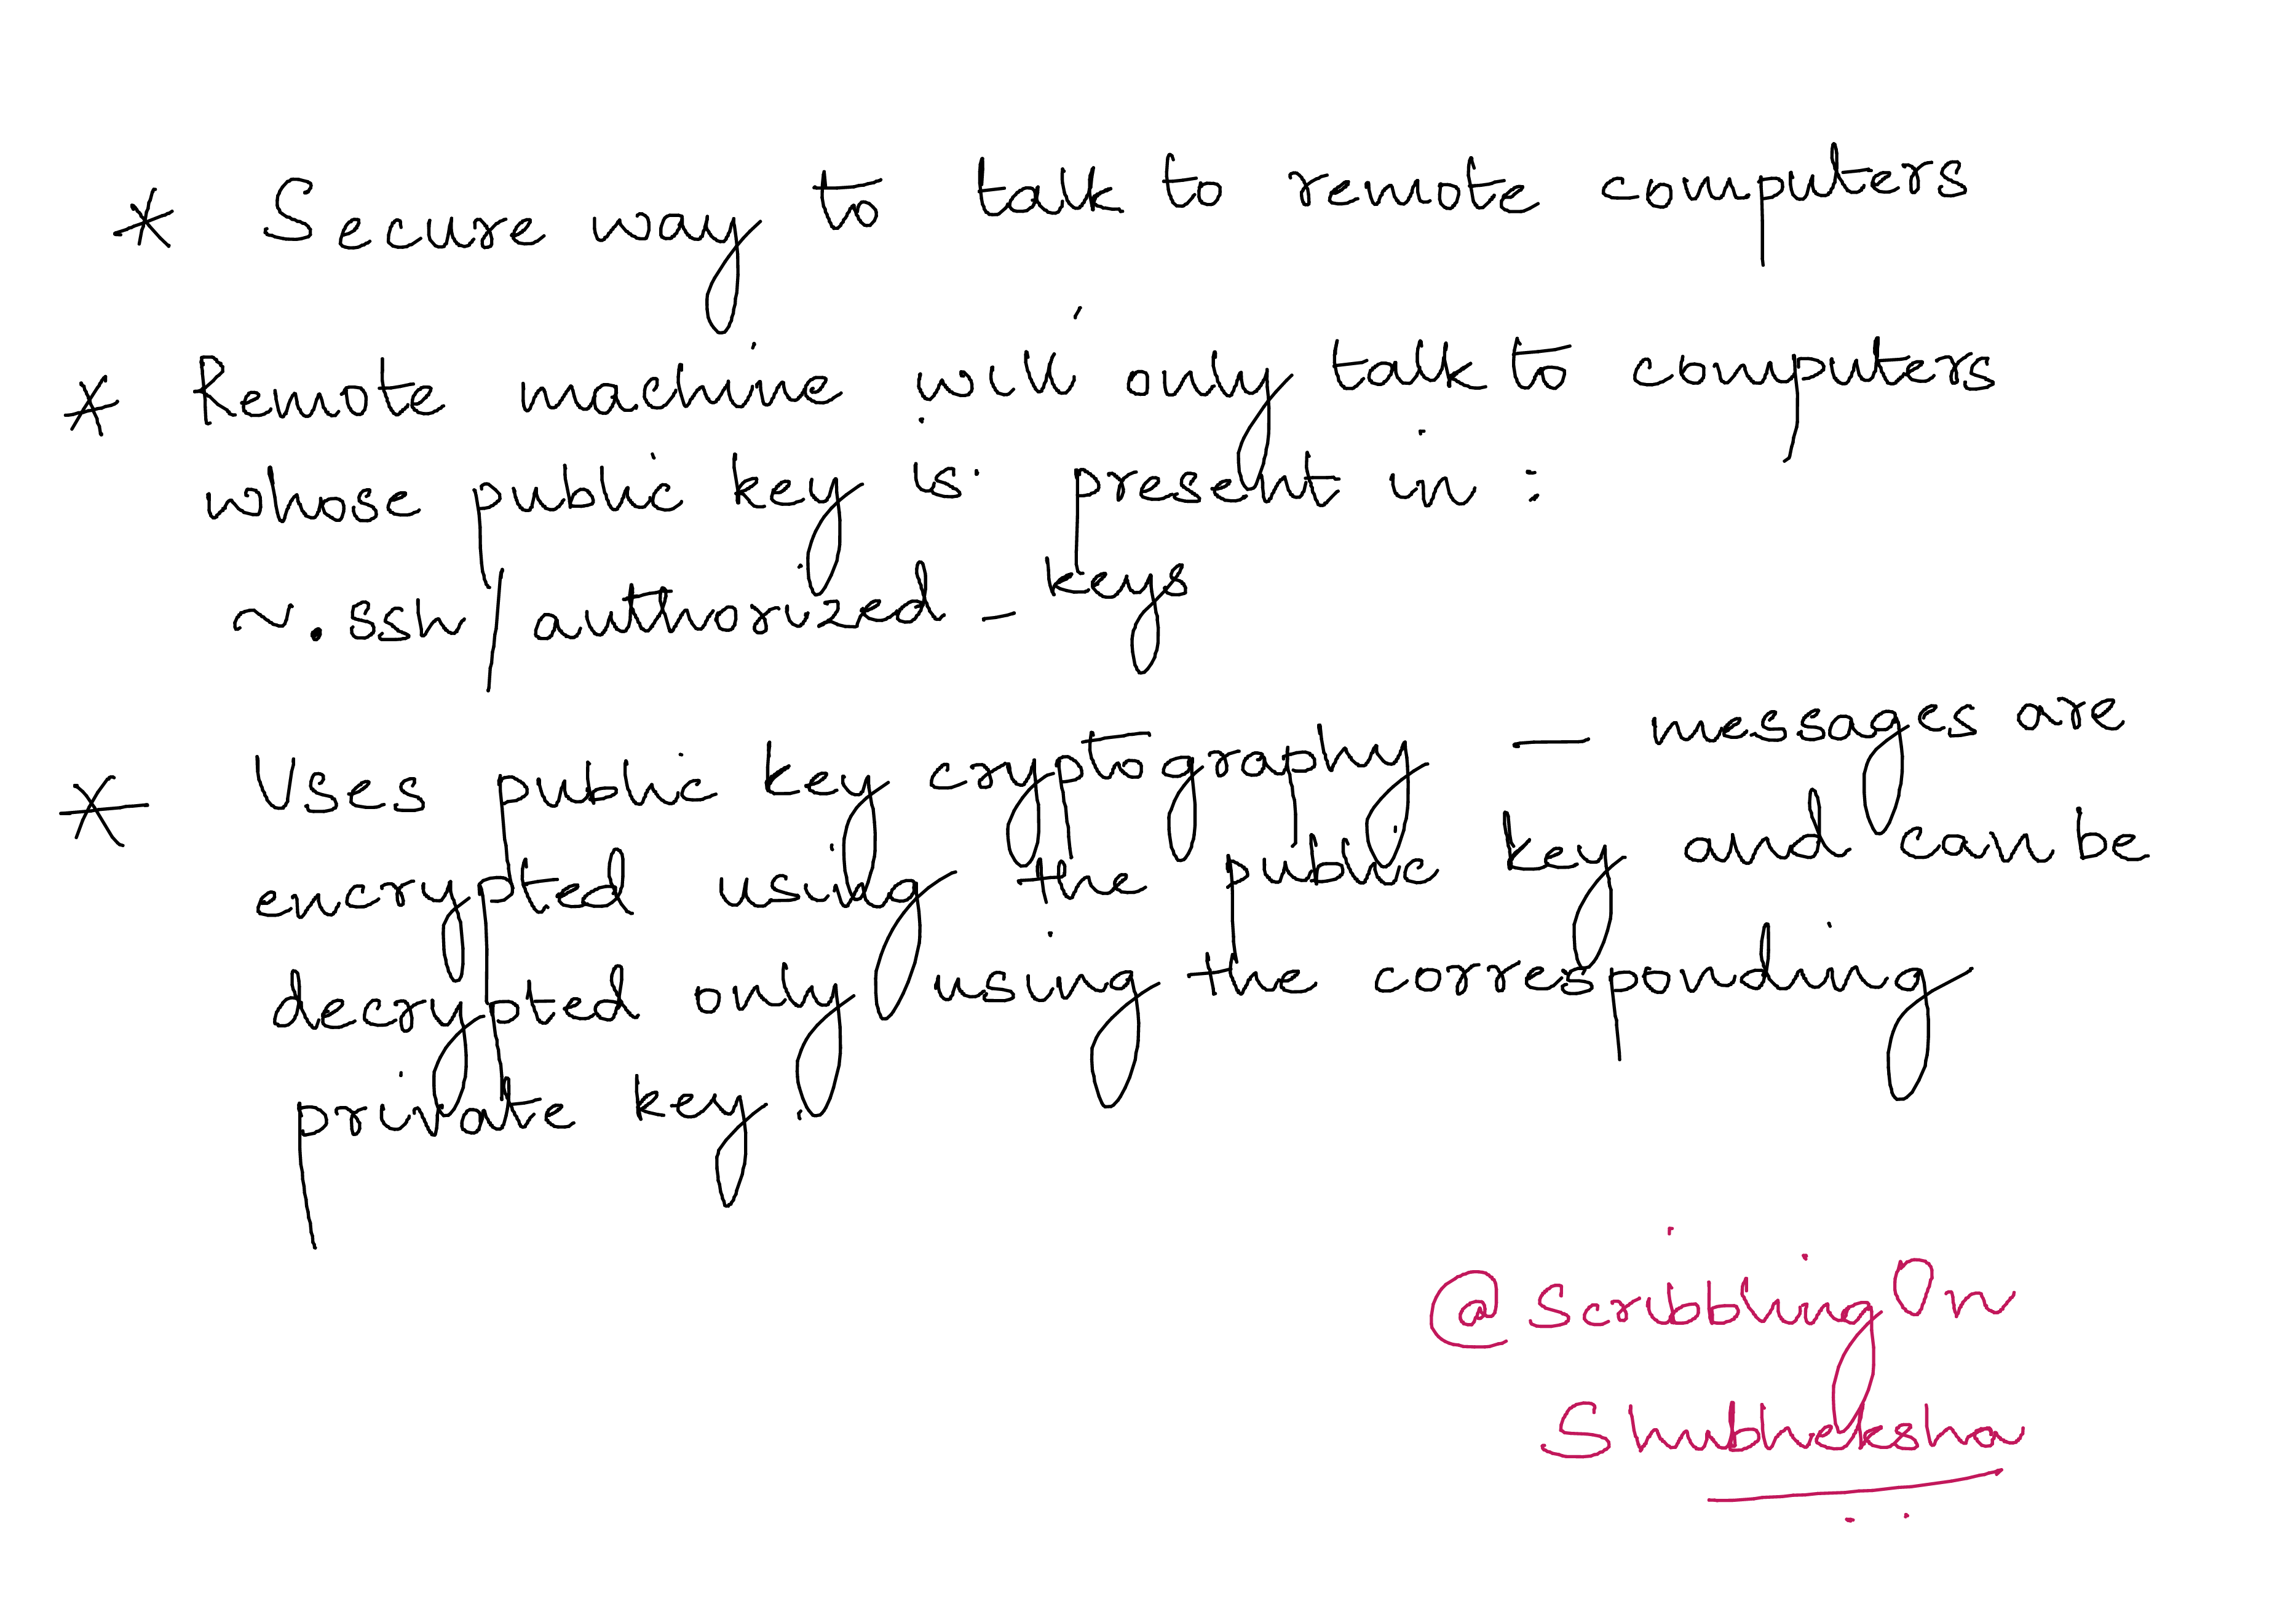 * Secure way to talk to remote computers
* Remote machine will only talk to computers
whose public key is present in :
~.ssh/authorized_keys
* Uses public key cryptography — messages are
encrypted using the public key and can be
decrypted only using the corresponding
private key.
@ScribblingOn
Shubheksha